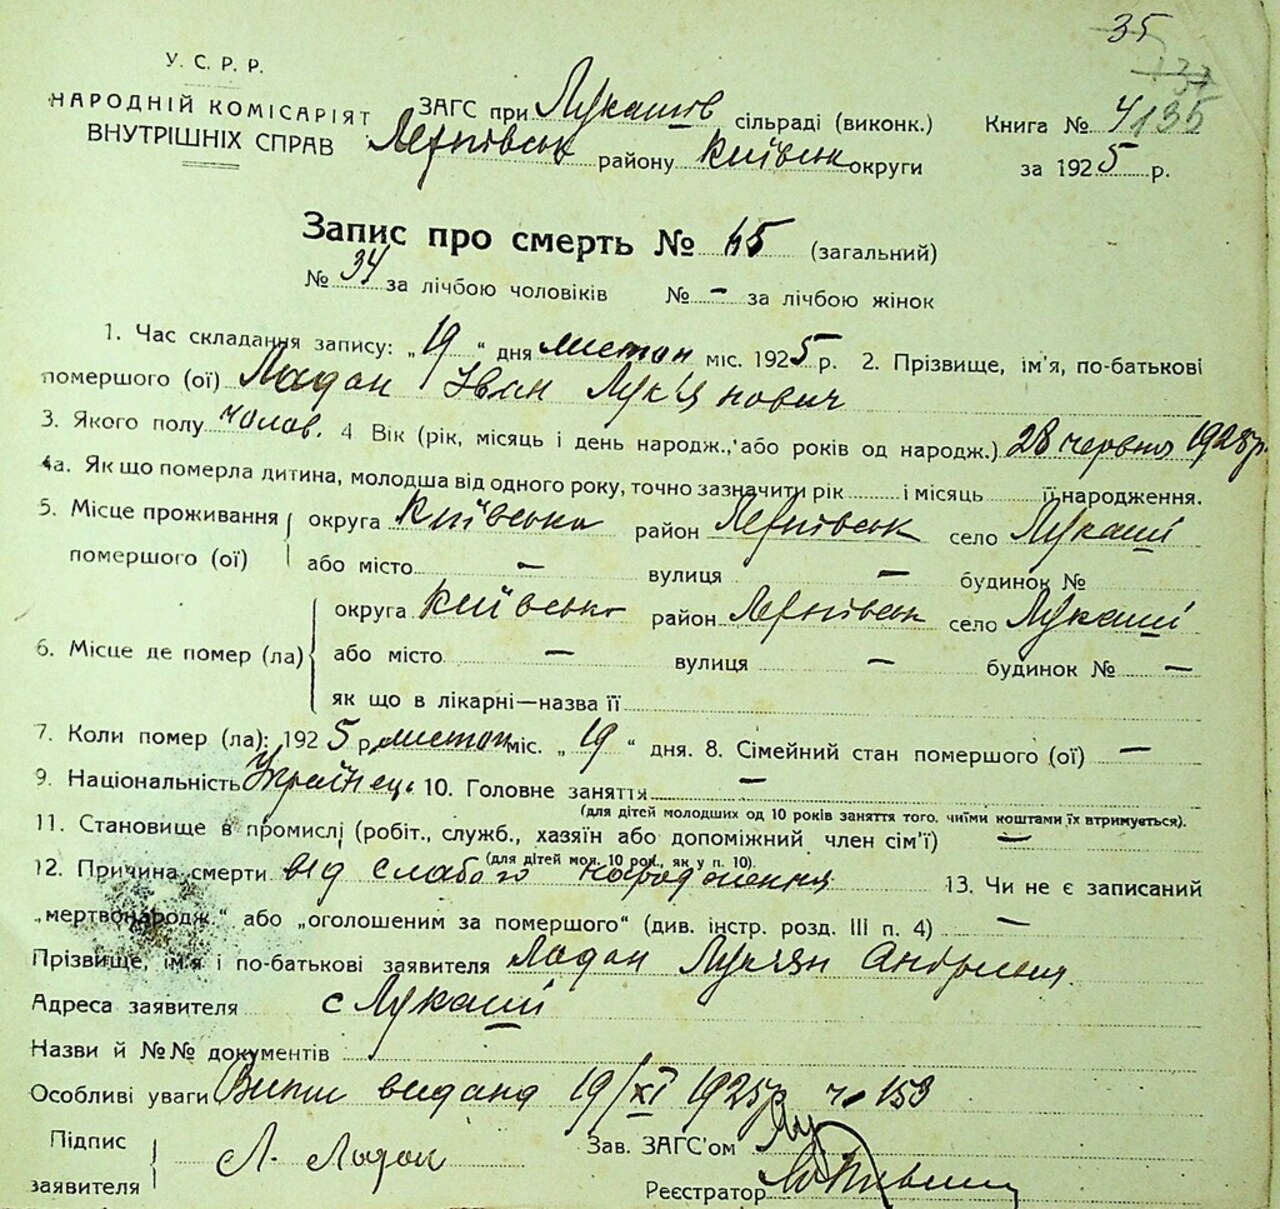 35
У. С. Р. Р.
НАРОДНІЙ КОМІСАРІЯТ
ВНУТРІШНІХ СПРАВ
ЗАГС при Лукашів сільраді (виконк.)
району Київськ округи
Книга № 4 135
за 1925 р.
Запис про смерть № 65 (загальний)
№ 34 за лічбою чоловіків № – за лічбою жінок
1. Час складання запису: „19“ дня листоп міс. 1925 р. 2. Прізвище, ім'я, по-батькові
помершого (ої) Ладан Іван Лук'янович
3. Якого полу чолов. 4 Вік (рік, місяць і день народж., або років од народж.) 28 червня 1925р.
4а. Як що померла дитина, молодша від одного року, точно зазначити рік і місяць її народження.
5. Місце проживання помершого (ої) округа Київська район село Лукаші
або місто – вулиця – будинок №
6. Місце де помер (ла) округа Київсько район село Лукаші
або місто – вулиця – будинок № –
як що в лікарні—назва її
7. Коли помер (ла): 1925 р. листоп міс. „19“ дня. 8. Сімейний стан помершого (ої) –
9. Національність Українець 10. Головне заняття –
(для дітей молодших од 10 років заняття того, чиїми коштами їх втримується).
11. Становище в промислі (робіт., служб., хазяїн або допоміжний член сім'ї) –
(для дітей мол. 10 рок., як у п. 10).
12. Причина смерти від слабого народження 13. Чи не є записаний
„мертвонародж.“ або „оголошеним за помершого“ (див. інстр. розд. III п. 4) –
Прізвище, ім'я і по-батькові заявителя Ладан Лукян
Адреса заявителя с Лукаші
Назви й №№ документів
Особливі уваги видана 19/XI 1925р ч. 153
Підпис заявителя Л. Ладан
Зав. ЗАГС'ом
Реєстратор